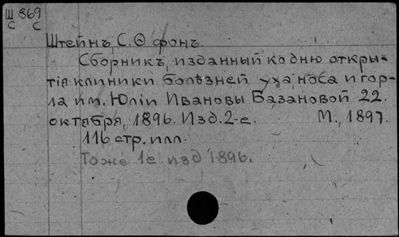 Ш 869
С С
Штейнъ С. Ѳ фонъ.
Сборникъ, изданный ко дню откры-
тія клиники болѣзней уха носа и гор-
ла им. Юліи Ивановы Базановой 22.
октября, 1896. Изд. 2-е. М., 1897.
116 стр. илл.
Тоже 1е изд 1896.